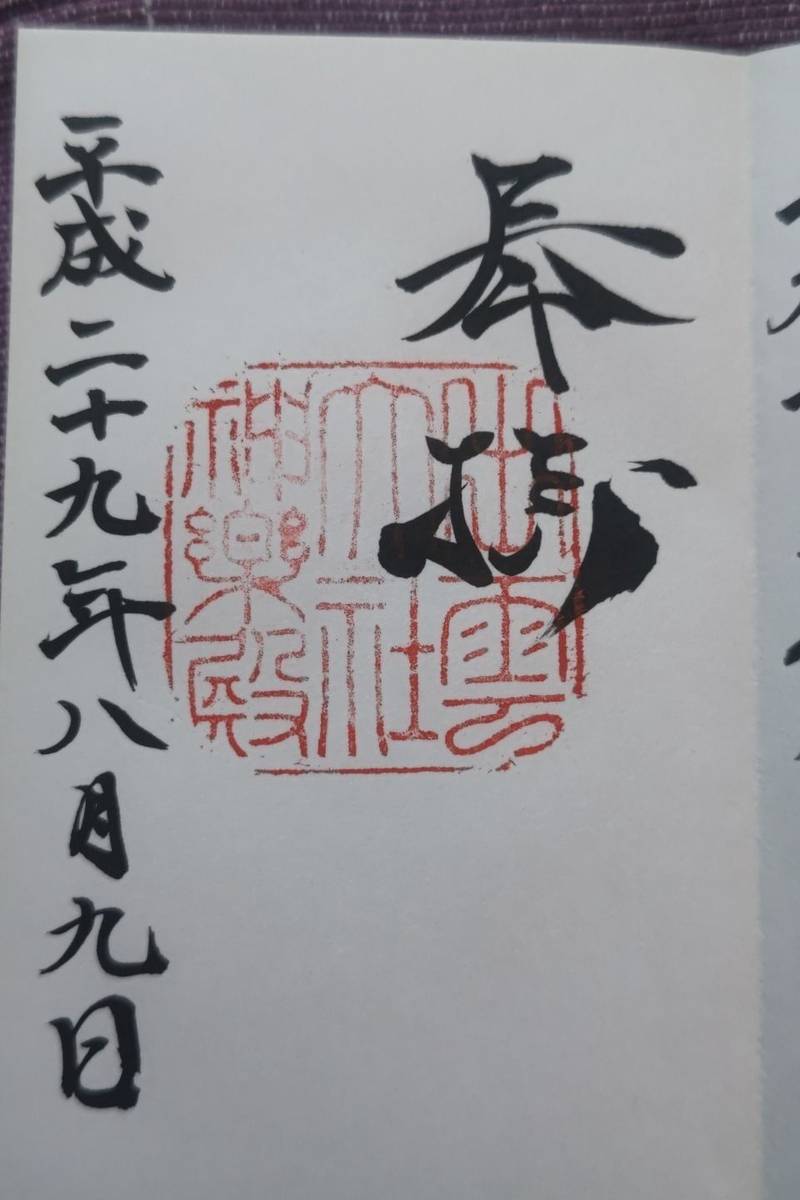 奉拝
出雲
大社
神楽殿
平成二十九年八月九日